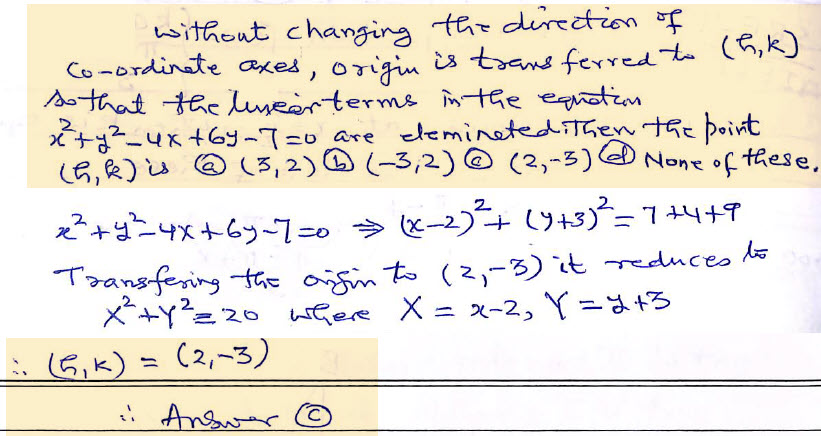 without changing the direction of
co-ordinate axes, origin is transferred to (h,k)
so that the linear terms in the equation
x²+y²-4x+6y-7=0 are eleminated. Then the point
(h,k) is ⓐ (3,2) ⓑ (-3,2) ⓒ (2,-3) ⓓ None of these.
x²+y²-4x+6y-7=0 ⇒ (x-2)²+(y+3)²=7+4+9
Transfering the origin to (2,-3) it reduces to
X²+Y²=20 where X = x-2, Y = y+3
∴ (h,k) = (2,-3)
∴ Answer ⓒ